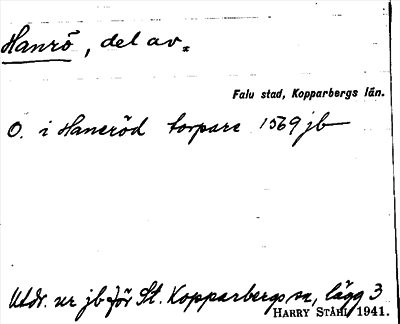 Hanrö, del av.
Falu stad, Kopparbergs län.
O. i Haneröd torpare 1569 jb
Utdr. ur jb för St. Kopparbergs sn, lägg 3
HARRY STÅHL 1941.